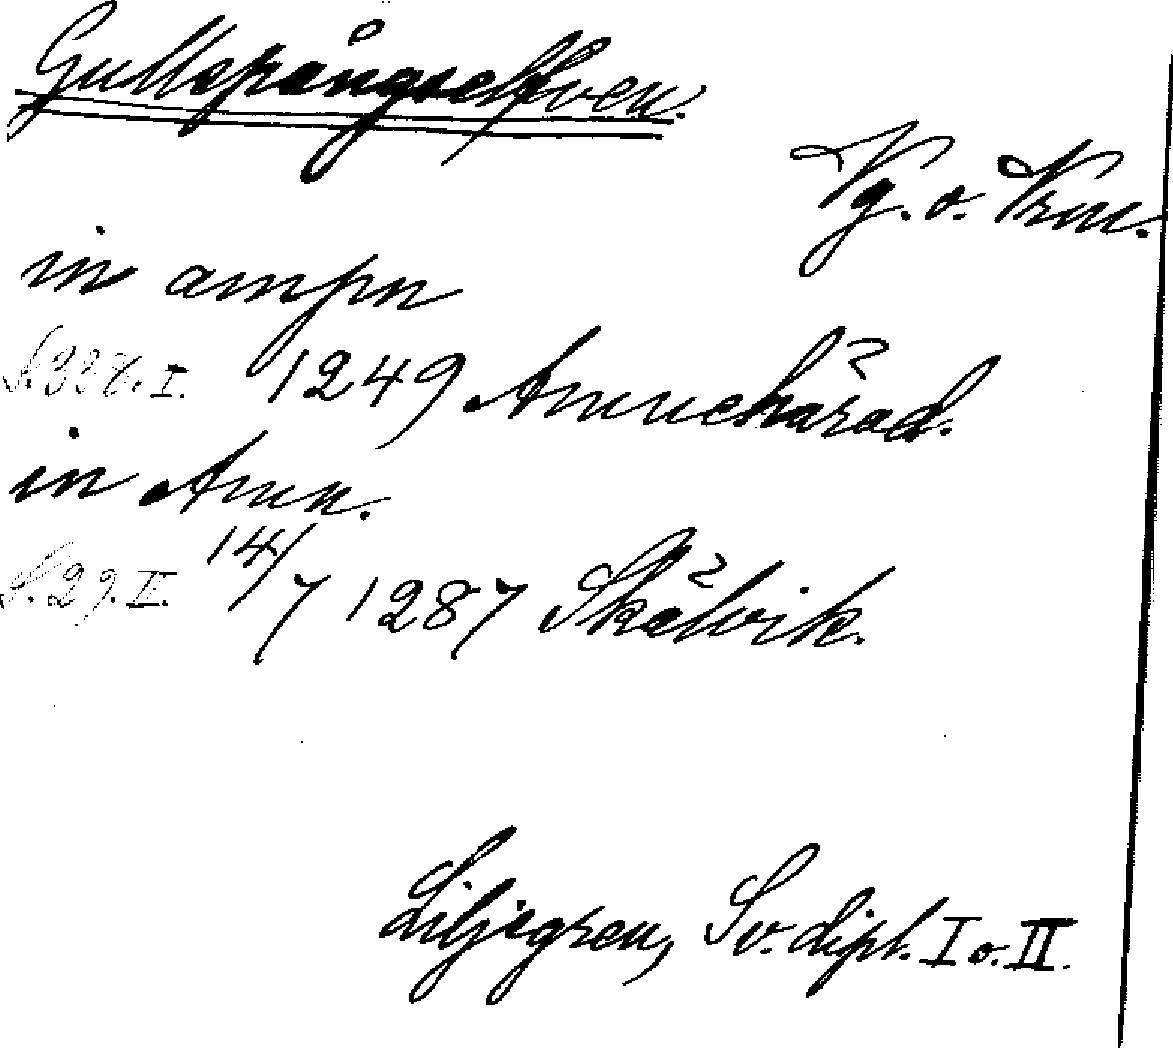 Gullspångselfven.
Vg. o. Vrm.
in ampn
S. 338. I. 1249 Amnehärad.
in Amn.
S. 29. II. 14/7 1287 Skålvik.
Liljegren, Sv. dipl. I o. II.